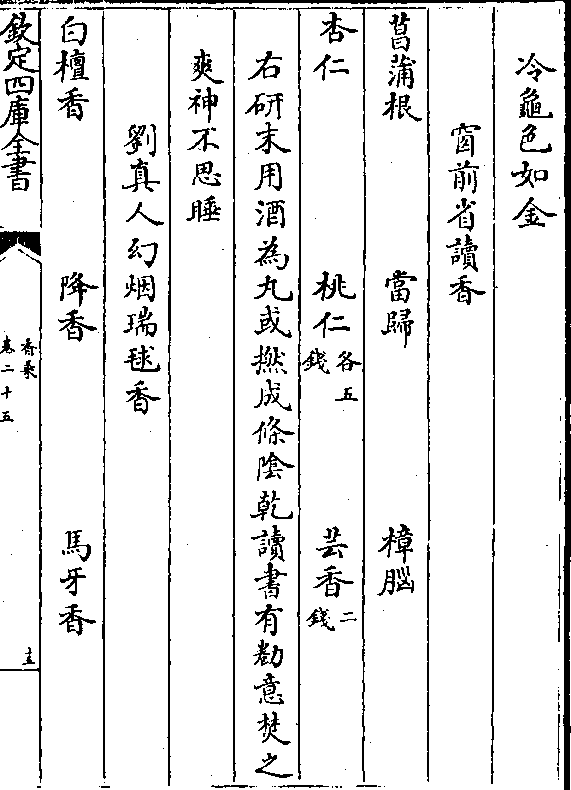 冷龜色如金
窗前省讀香
菖蒲根 當歸 樟腦
杏仁 桃仁各五錢 芸香二錢
右研末用酒為丸或撚成條陰乾讀書有勌意焚之
爽神不思睡
劉真人幻烟瑞球香
白檀香 降香 馬牙香
欽定四庫全書
香乗
卷二十五